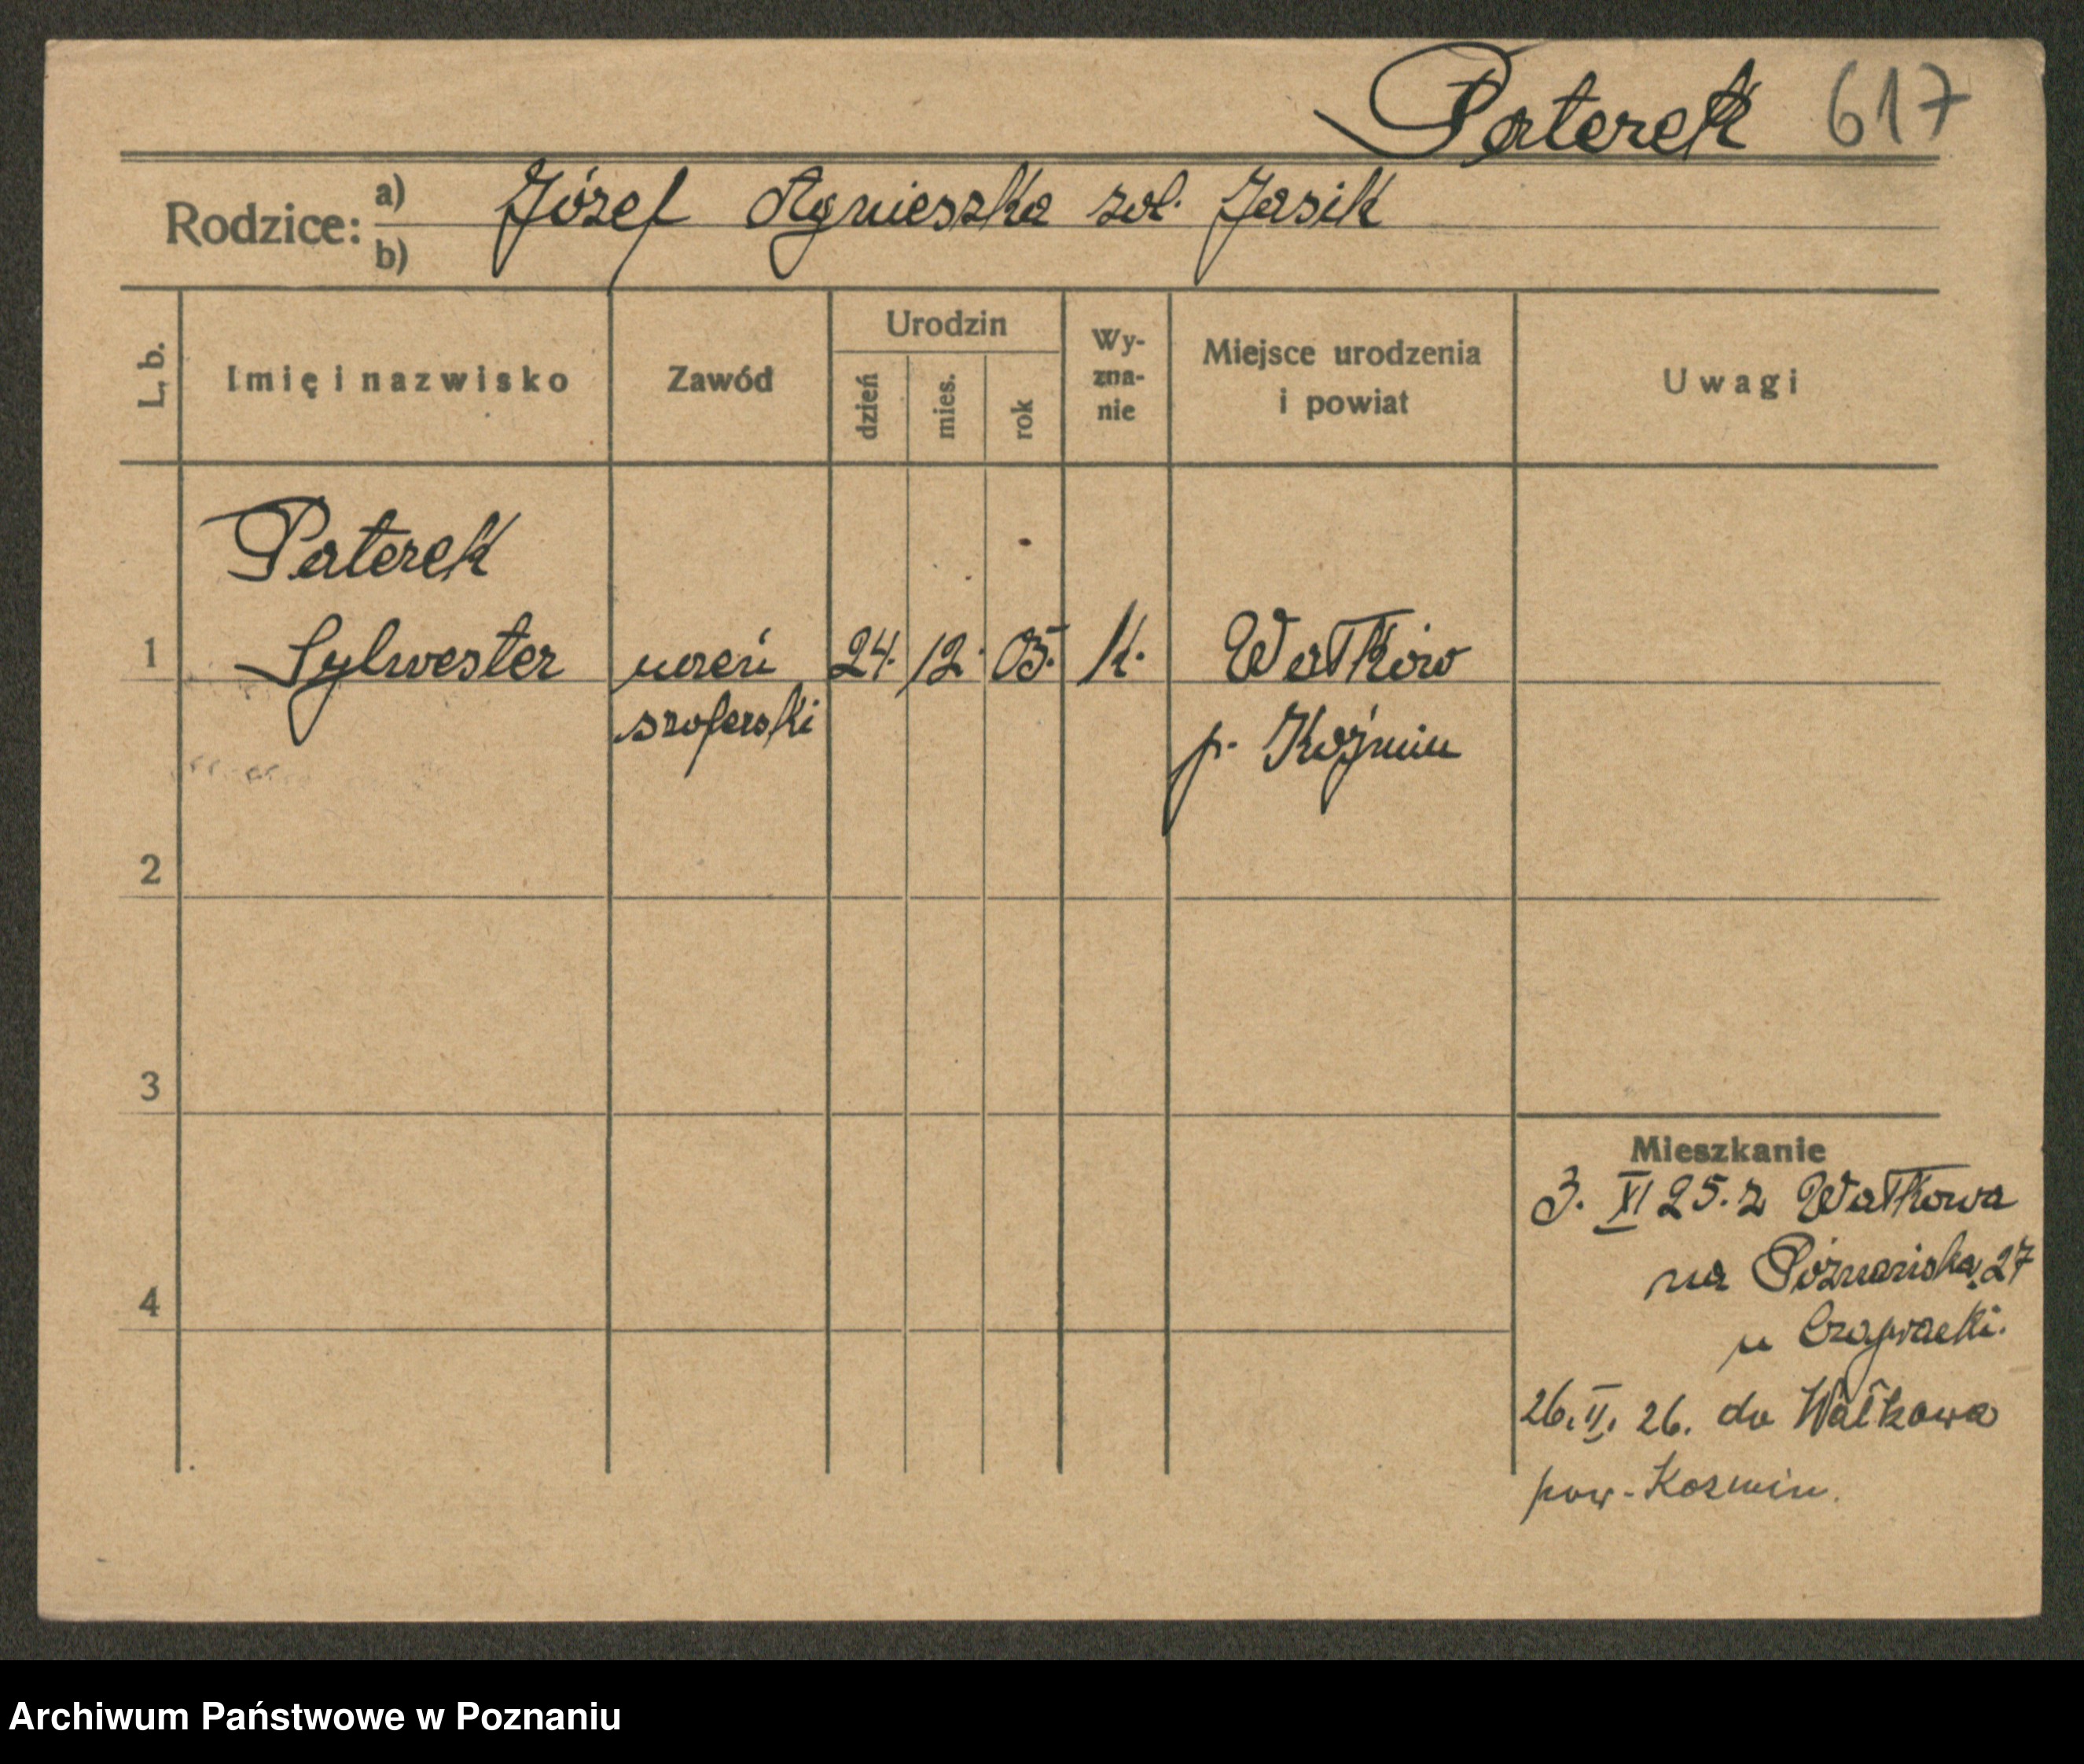 Paterek 617
Rodzice: a) b) Józef Agnieszka zd. Jasik
L. b. Imię i nazwisko Zawód Urodzin dzień mies. rok Wy-zna-nie Miejsce urodzenia i powiat Uwagi
Paterek
1 Sylwester uczeń 24. 12. 05. k. Wałków
szoferski p. Koźmin
2
3
Mieszkanie
3. XI 25. z Wałkowa
na Poznańska 27
4
u
26. II. 26. do Wałkowa
pow. Kozmin.
Archiwum Państwowe w Poznaniu